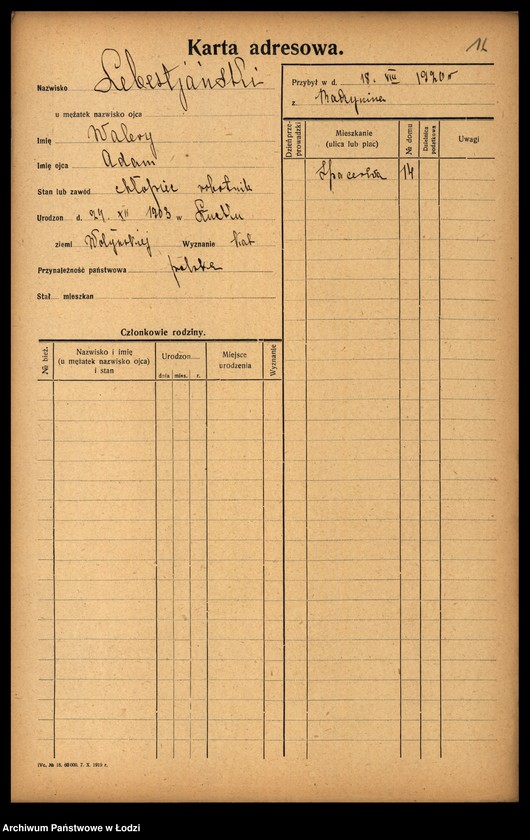 Karta adresowa.
12
Nazwisko Sebestjański
u mężatek nazwisko ojca
Imię Walery
Imię ojca Adam
Stan lub zawód chłopiec robotnik
Urodzon d. 24. XII 1903 w Łucku
ziemi Wołyńskiej Wyznanie kat
Przynależność państwowa polska
Stał. mieszkan
Przybył w d. 18. VIII 1920 r
z
Dzień przeprowadzki
Mieszkanie
(ulica lub plac)
№ domu
Dzielnica podatkowa
Uwagi
Spacerowa 14
Członkowie rodziny.
№ bież.
Nazwisko i imię
(u mężatek nazwisko ojca)
i stan
Urodzon
dnia mies. r.
Miejsce
urodzenia
Wyznanie
Archiwum Państwowe w Łodzi